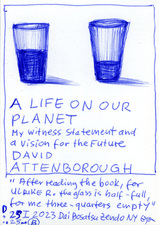 A LIFE ON OUR
PLANET
My witness Statement and
a Vision for the Future
DAVID
ATTENBOROUGH
"After reading the book, for
ULRIKE R. the glass is half-full,
for me three-quarters empty"
25 I 2023 Dai Bosatsu Zendo NY